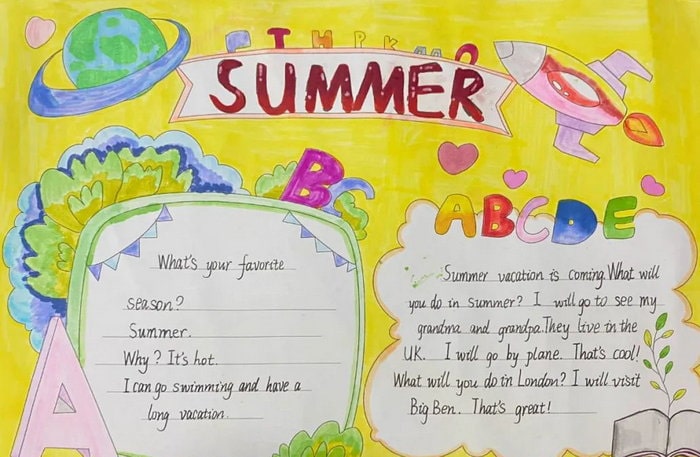 SUMMER
B
ABCDE
What's your favorite
season?
Summer.
Why? It's hot.
I can go swimming and have a
long vacation.
A
Summer vacation is coming. What will
you do in summer? I will go to see my
grandma and grandpa. They live in the
UK. I will go by plane. That's cool!
What will you do in London? I will visit
Big Ben. That's great!